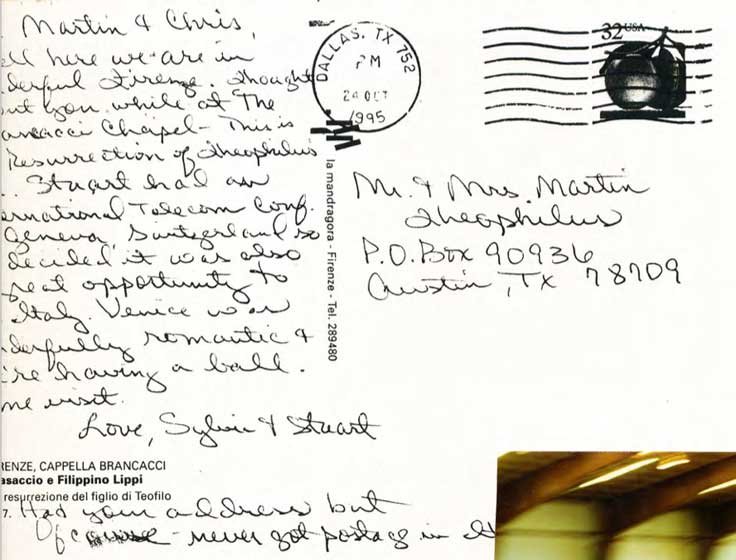 Martin & Chris,
ll here we are in
derful Firenze. Thought
ut you while at The
ancacci Chapel - This is
Resurrection of Theophilus
Stuart had an
ernational Telecom Conf.
Geneva, Switzerland so
decided it was also
reat opportunity to
Italy. Venice was
derfully romantic &
're having a ball.
me visit.
Love, Sylvie & Stuart
RENZE, CAPPELLA BRANCACCI
asaccio e Filippino Lippi
resurrezione del figlio di Teofilo
7. Had your address but
Of course - never got postage in It
la mandragora - Firenze - Tel. 289480
DALLAS, TX 752
PM
24 OCT
1995
32 USA
Mr. & Mrs. Martin
Theophilus
P.O. Box 90936
Austin, TX 78709